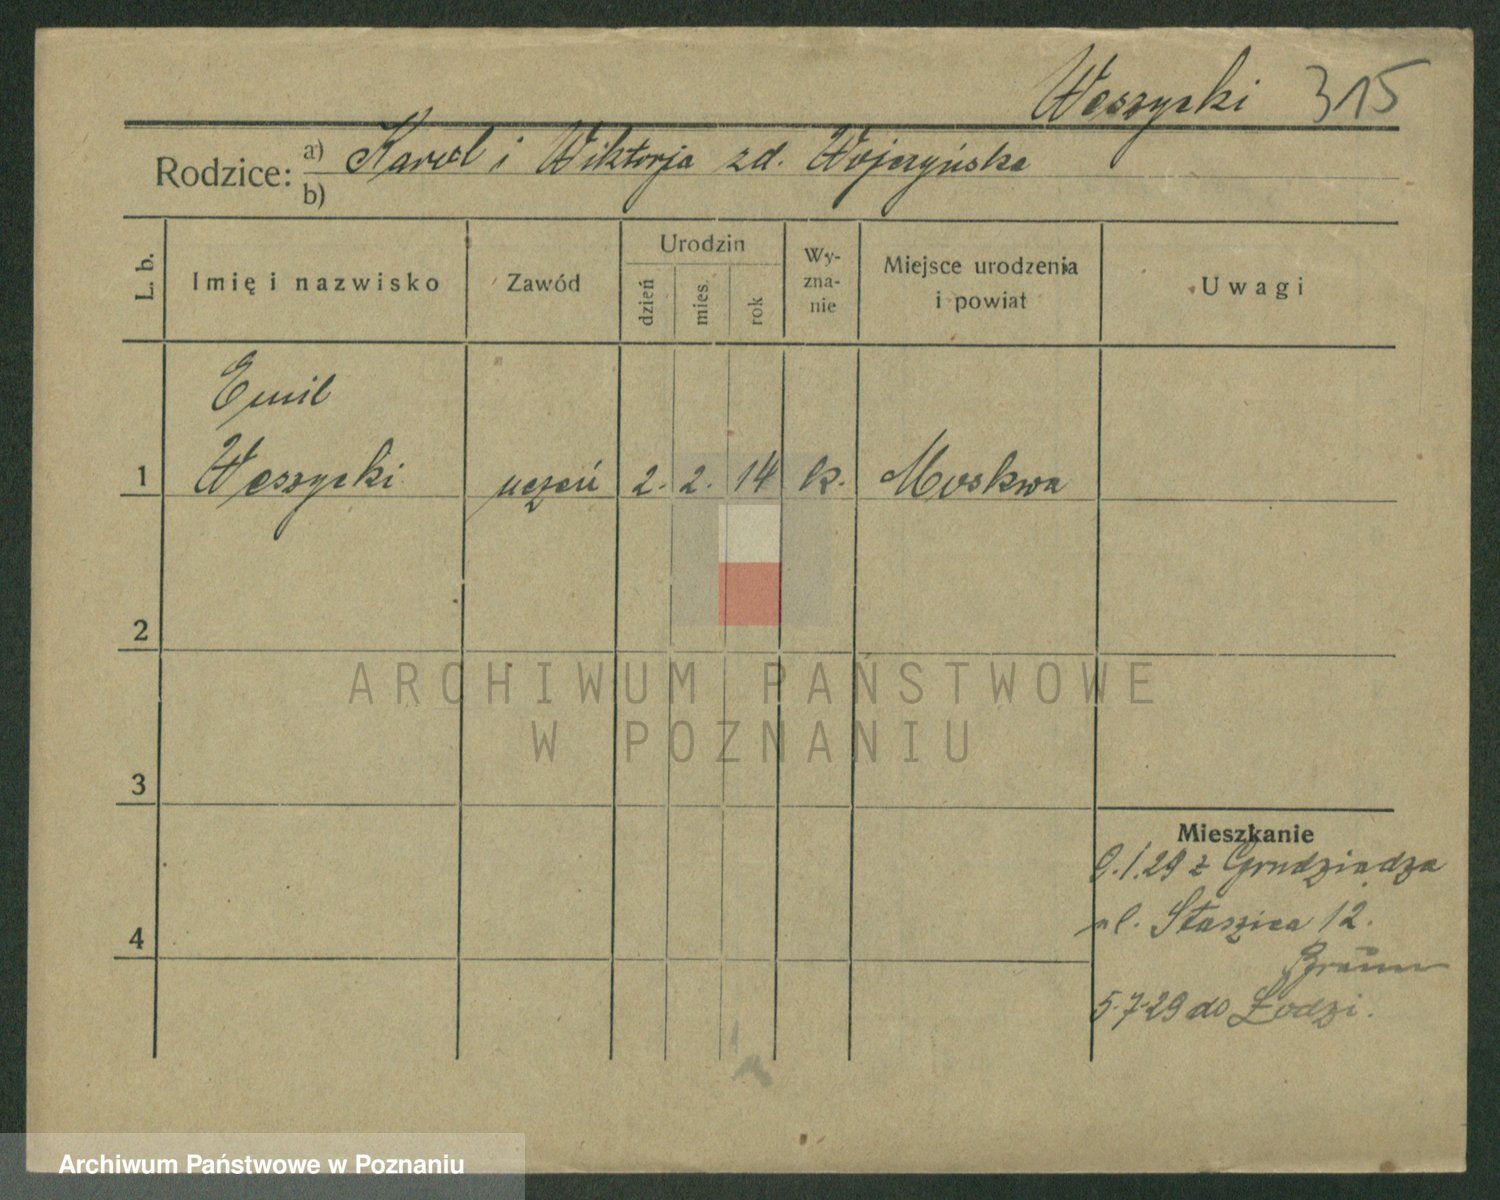 Weszycki 315
Rodzice: a) Karol i Wiktorja zd. Wojczyńska
b)
L. b. Imię i nazwisko Zawód Urodzin dzień mies. rok Wy-zna-nie Miejsce urodzenia i powiat Uwagi
Emil
1 Weszycki uczeń 2. 2. 14 k. Moskwa
2
ARCHIWUM PAŃSTWOWE
W POZNANIU
3
Mieszkanie
9.1.29 z Grudziądza
4 ul. Staszica 12.
Braun
5.7.29 do Łodzi.
Archiwum Państwowe w Poznaniu